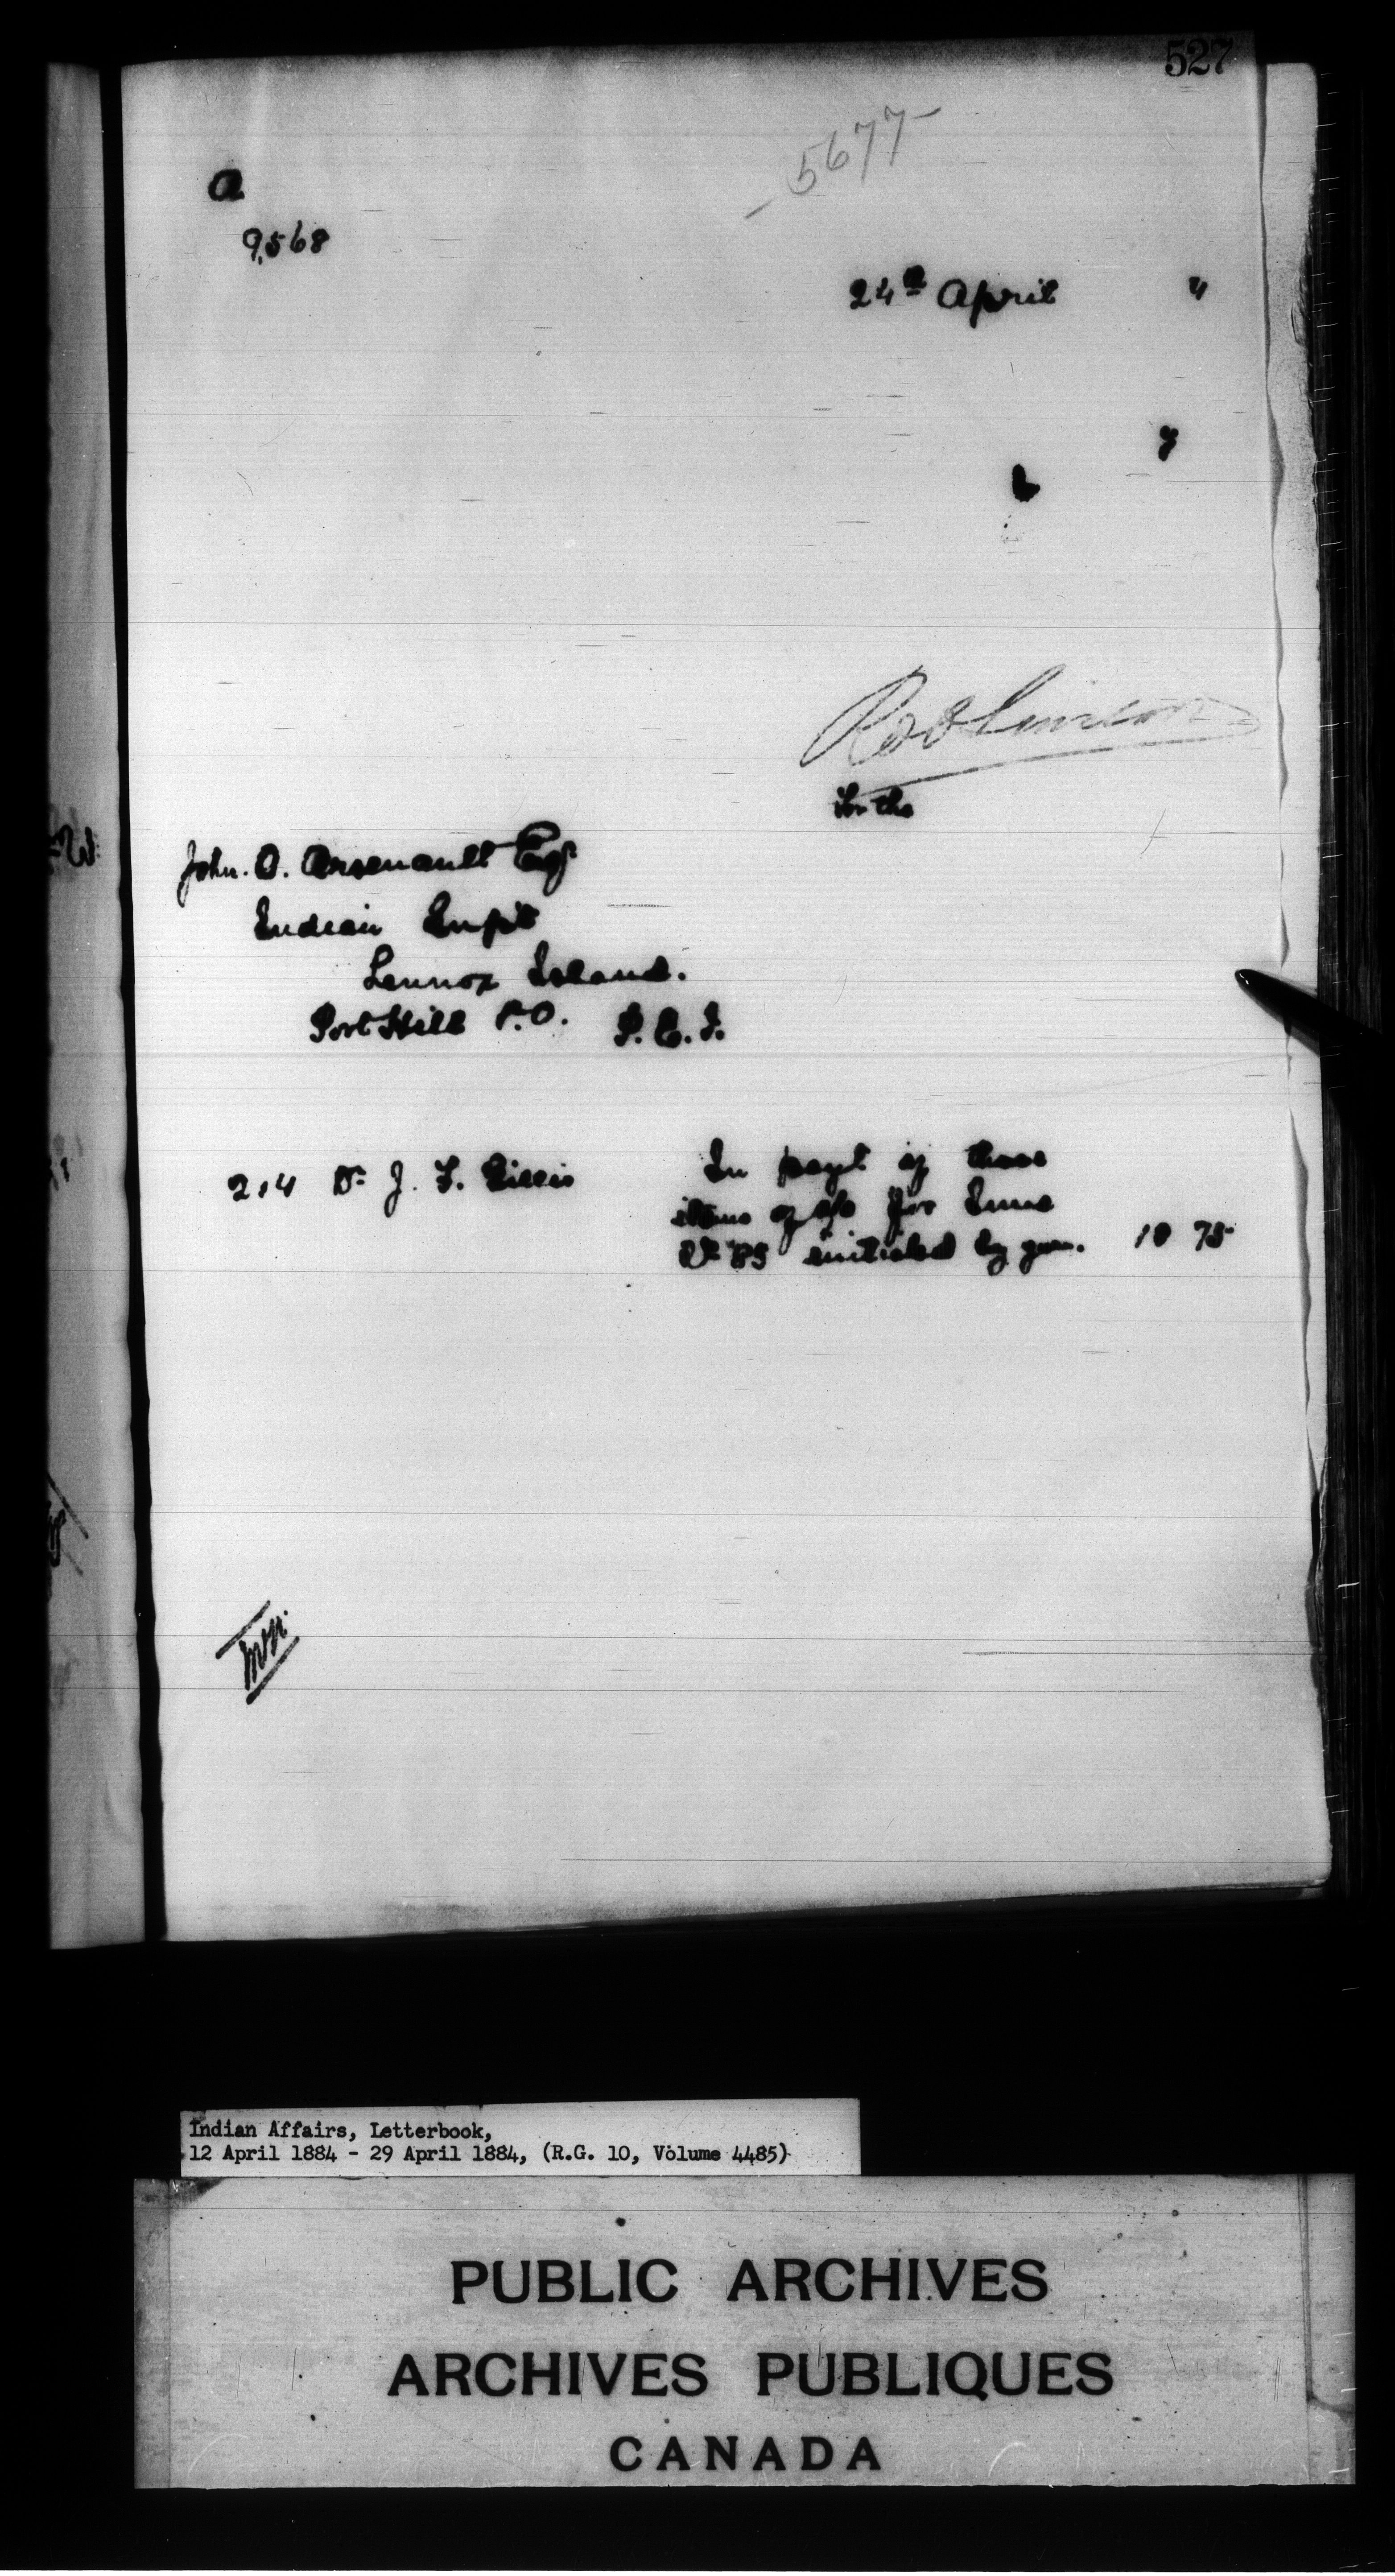 527
5677
a
9,568
24th April 4
John. O. Arsenault Esq
Indian Supt
Lennox Island.
Port Hill P.O. P.E.I.
214 Dr J. F. Gillis In payt of those
items of a/c for Inds
initialed by you. 10 75
Indian Affairs, Letterbook,
12 April 1884 - 29 April 1884, (R.G. 10, Volume 4485)
PUBLIC ARCHIVES
ARCHIVES PUBLIQUES
CANADA